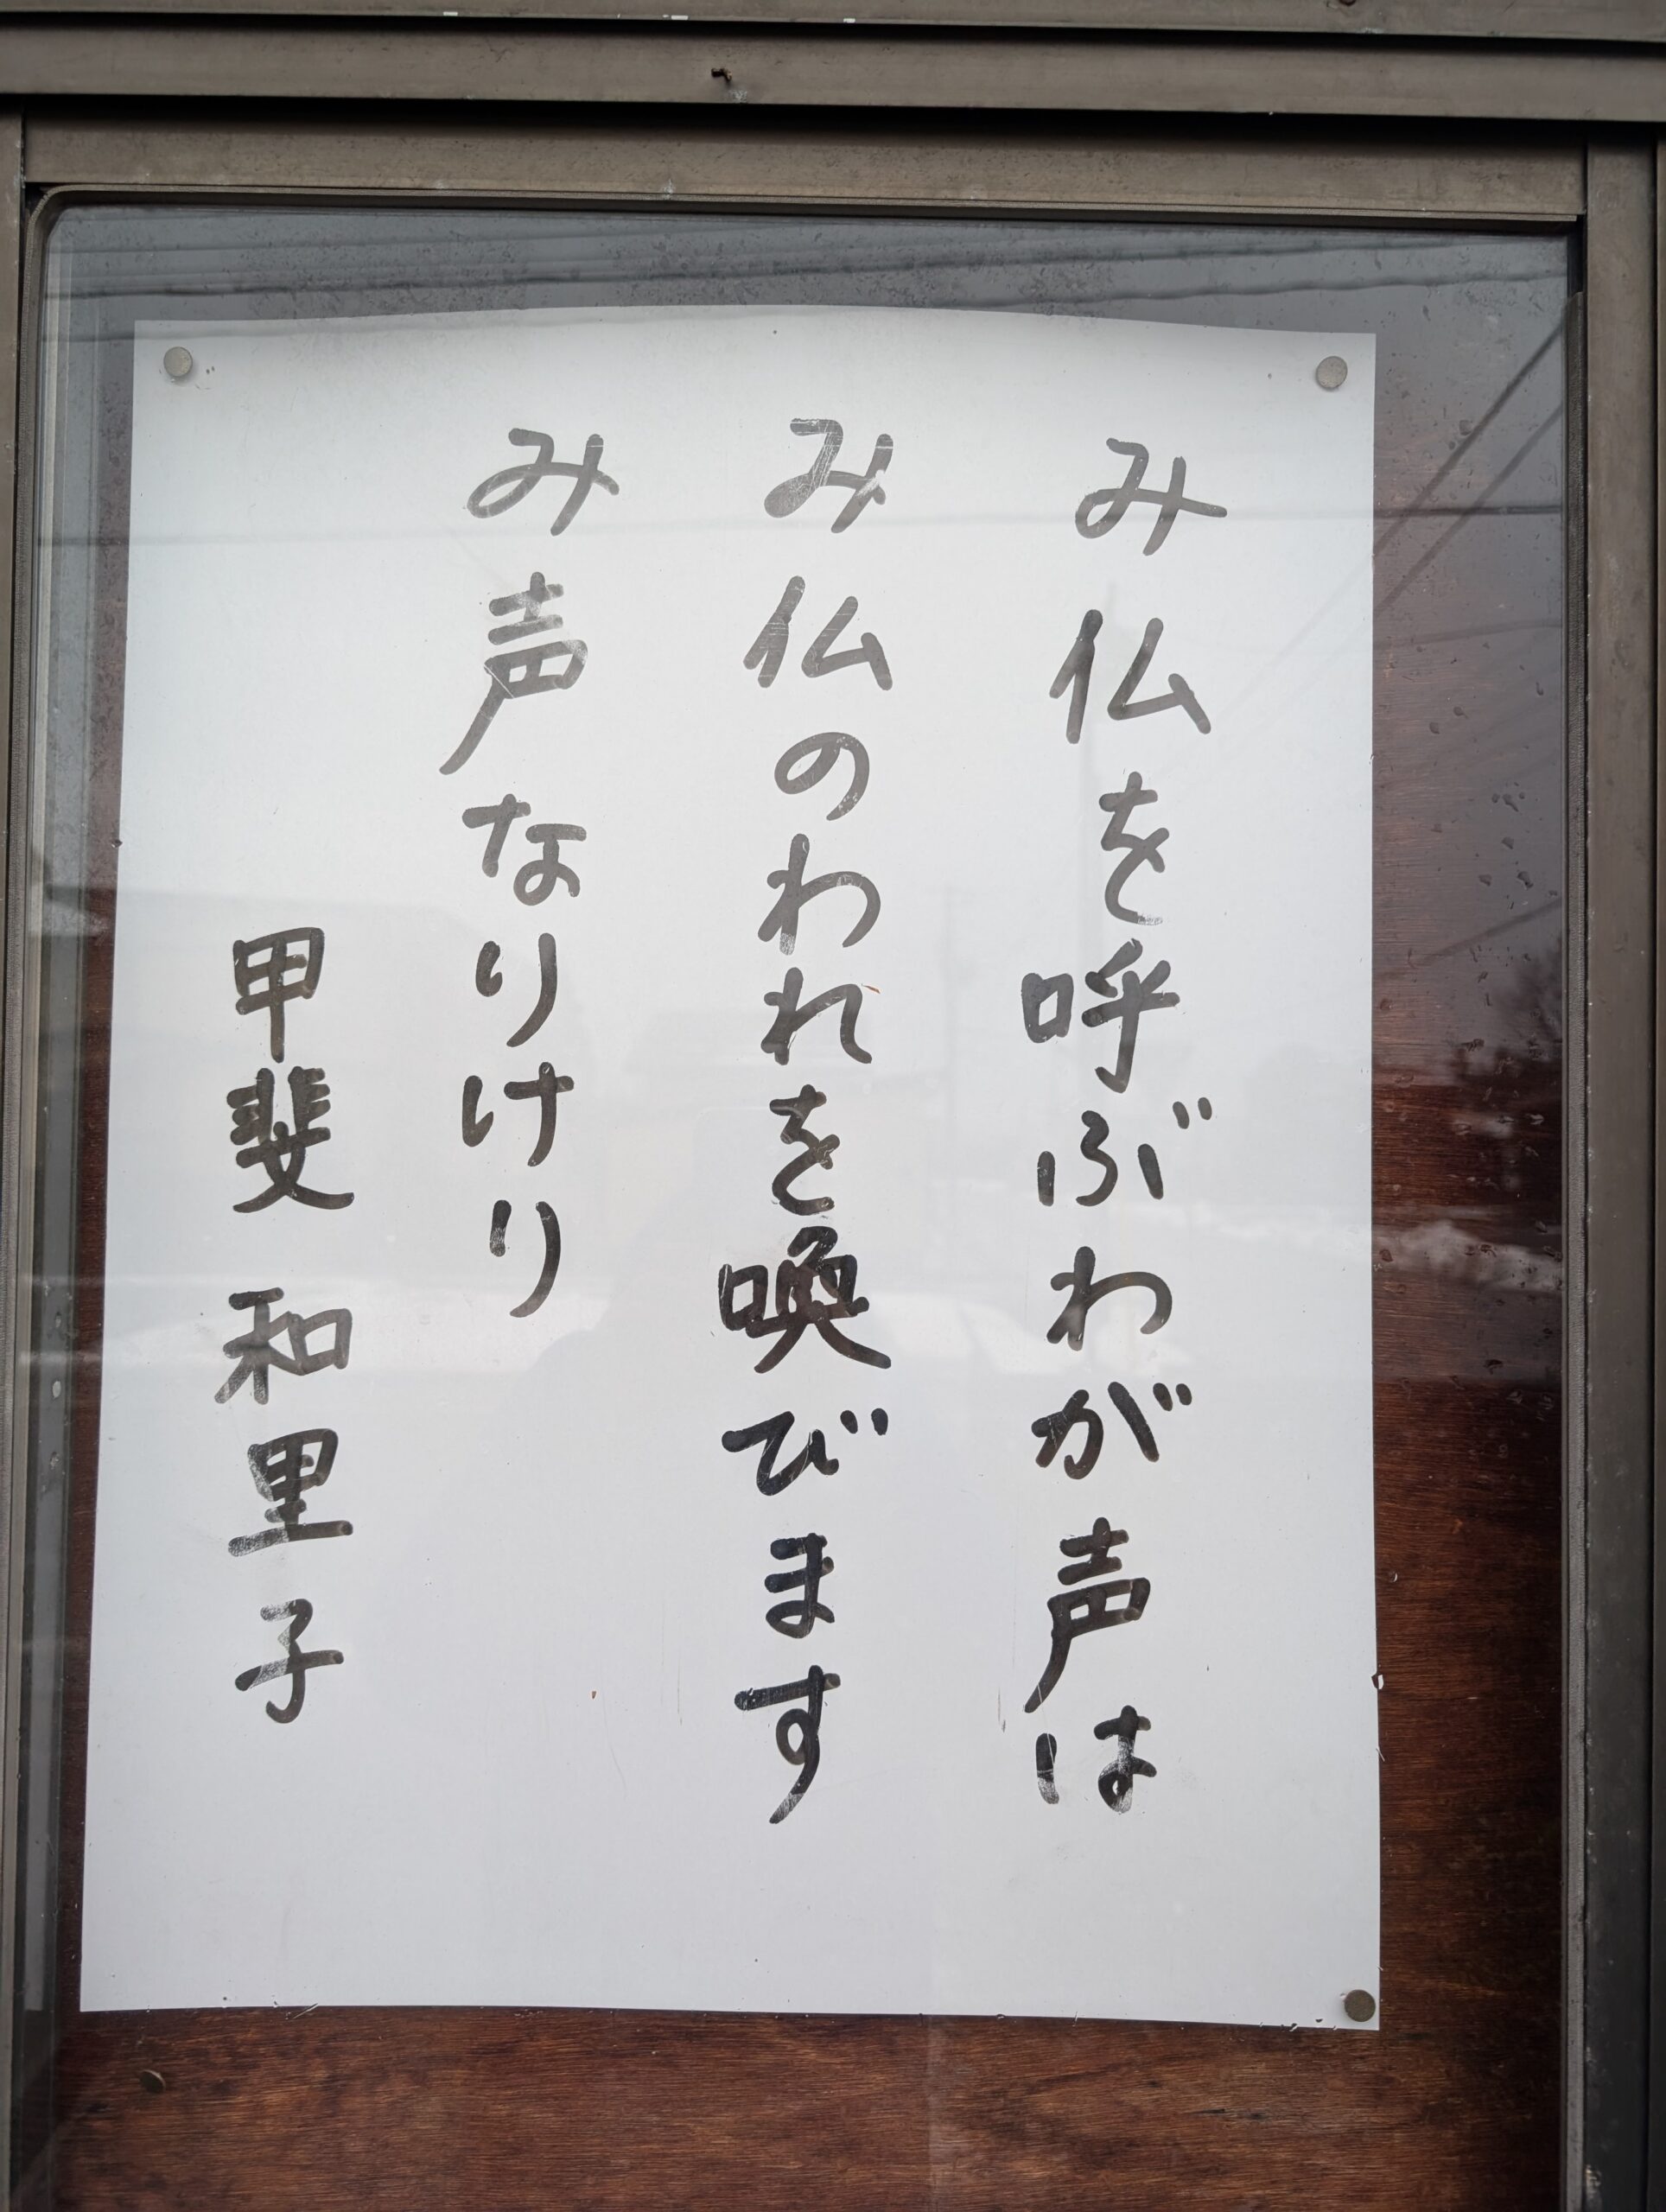 み仏を呼ぶわが声は
み仏のわれを喚びます
み声なりけり
甲斐和里子